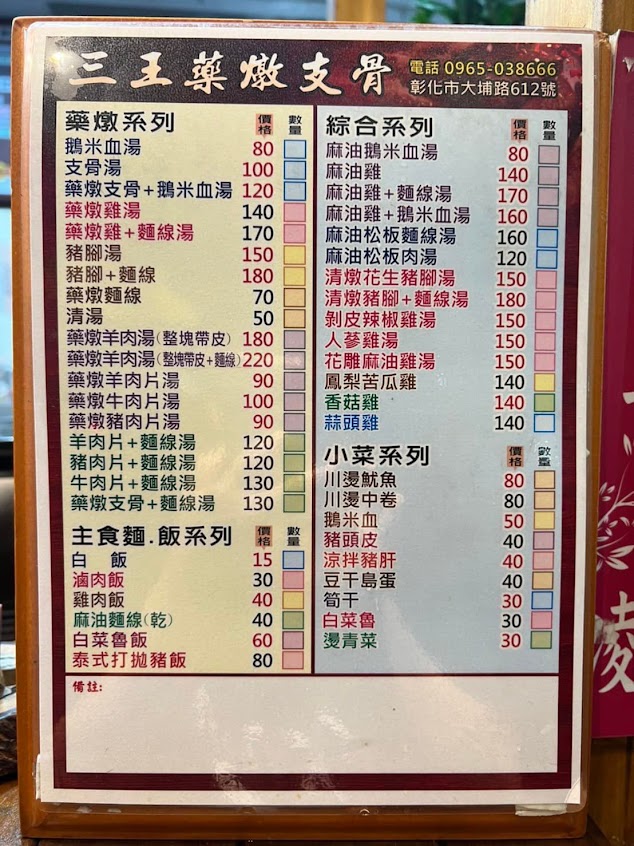 三王藥燉支骨
電話 0965-038666
彰化市大埔路612號
藥燉系列 價格 數量
鵝米血湯 80
支骨湯 100
藥燉支骨+鵝米血湯 120
藥燉雞湯 140
藥燉雞+麵線湯 170
豬腳湯 150
豬腳+麵線 180
藥燉麵線 70
清湯 50
藥燉羊肉湯(整塊帶皮) 180
藥燉羊肉湯(整塊帶皮+麵線) 220
藥燉羊肉片湯 90
藥燉牛肉片湯 100
藥燉豬肉片湯 90
羊肉片+麵線湯 120
豬肉片+麵線湯 120
牛肉片+麵線湯 130
藥燉支骨+麵線湯 130
主食麵.飯系列 價格 數量
白 飯 15
滷肉飯 30
雞肉飯 40
麻油麵線(乾) 40
白菜魯飯 60
泰式打拋豬飯 80
綜合系列 價格 數量
麻油鵝米血湯 80
麻油雞 140
麻油雞+麵線湯 170
麻油雞+鵝米血湯 160
麻油松板麵線湯 160
麻油松板肉湯 120
清燉花生豬腳湯 150
清燉豬腳+麵線湯 180
剝皮辣椒雞湯 150
人蔘雞湯 150
花雕麻油雞湯 150
鳳梨苦瓜雞 140
香菇雞 140
蒜頭雞 140
小菜系列 價格 數量
川燙魷魚 80
川燙中卷 80
鵝米血 50
豬頭皮 40
涼拌豬肝 40
豆干島蛋 40
筍干 30
白菜魯 30
燙青菜 30
備註:
凌